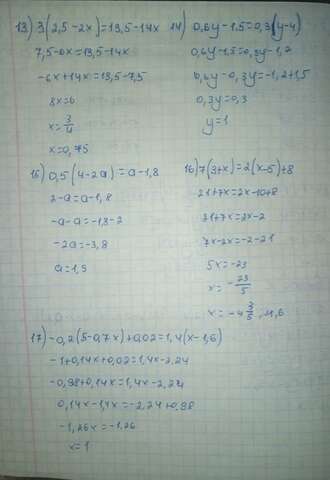 13) 3(2,5-2x)=13,5-14x
7,5-6x=13,5-14x
-6x+14x=13,5-7,5
8x=6
x=3/4
x=0,75
14) 0,6y-1,5=0,3(y-4)
0,6y-1,5=0,3y-1,2
0,6y-0,3y=-1,2+1,5
0,3y=0,3
y=1
15) 0,5(4-2a)=a-1,8
2-a=a-1,8
-a-a=-1,8-2
-2a=-3,8
a=1,9
16) 7(3+x)=2(x-5)+8
21+7x=2x-10+8
21+7x=2x-2
7x-2x=-2-21
5x=-23
x=-23/5
x=-4 3/5, -4,6
17) -0,2(5-0,7x)+0,02=1,4(x-1,6)
-1+0,14x+0,02=1,4x-2,24
-0,98+0,14x=1,4x-2,24
0,14x-1,4x=-2,24+0,98
-1,26x=-1,26
x=1